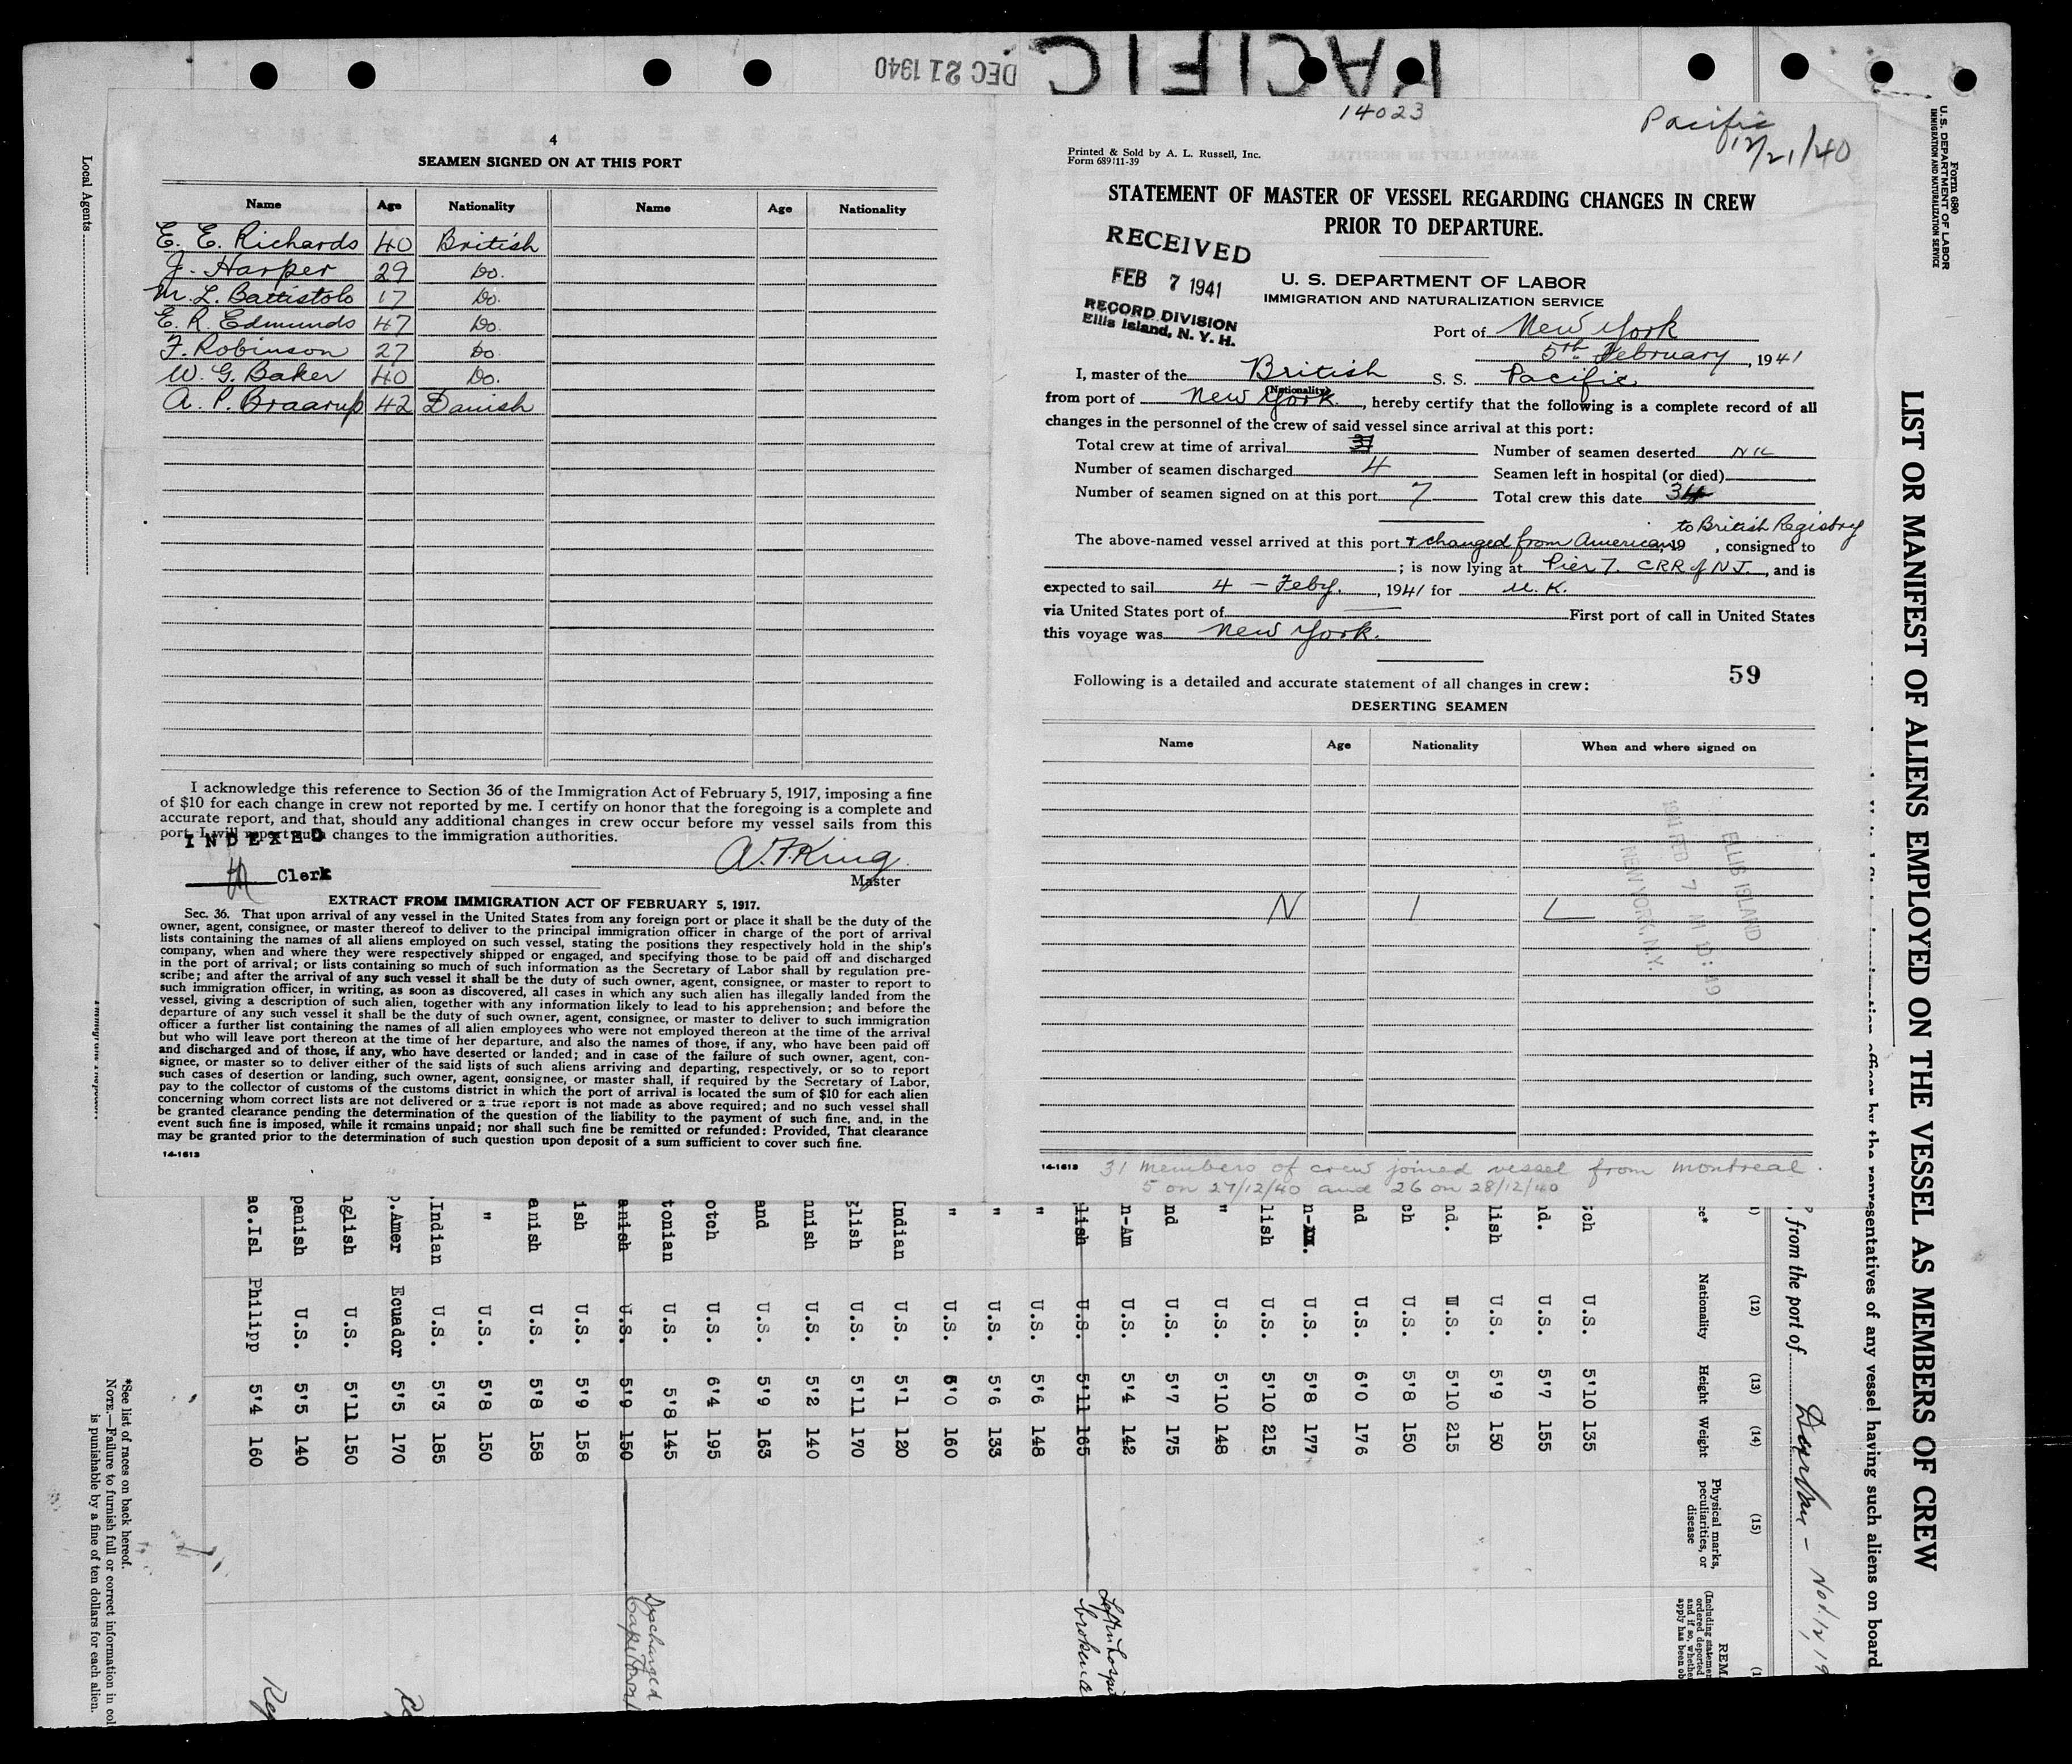 PACIFIC
DEC 21 1940
14023
Pacific
12/21/40
4
SEAMEN SIGNED ON AT THIS PORT
Name Age Nationality Name Age Nationality
E. E. Richards 40 British
J. Harper 29 Do.
M. L. Battistolo 17 Do.
E. R. Edmunds 47 Do.
F. Robinson 27 Do
W. G. Baker 40 Do.
A. P. Braarup 42 Danish
I acknowledge this reference to Section 36 of the Immigration Act of February 5, 1917, imposing a fine
of $10 for each change in crew not reported by me. I certify on honor that the foregoing is a complete and
accurate report, and that, should any additional changes in crew occur before my vessel sails from this
port, I will report such changes to the immigration authorities.
INDEXED
Clerk
A. F. King
Master
EXTRACT FROM IMMIGRATION ACT OF FEBRUARY 5, 1917.
Sec. 36. That upon arrival of any vessel in the United States from any foreign port or place it shall be the duty of the
owner, agent, consignee, or master thereof to deliver to the principal immigration officer in charge of the port of arrival
lists containing the names of all aliens employed on such vessel, stating the positions they respectively hold in the ship's
company, when and where they were respectively shipped or engaged, and specifying those to be paid off and discharged
in the port of arrival; or lists containing so much of such information as the Secretary of Labor shall by regulation pre-
scribe; and after the arrival of any such vessel it shall be the duty of such owner, agent, consignee, or master to report to
such immigration officer, in writing, as soon as discovered, all cases in which any such alien has illegally landed from the
vessel, giving a description of such alien, together with any information likely to lead to his apprehension; and before the
departure of any such vessel it shall be the duty of such owner, agent, consignee, or master to deliver to such immigration
officer a further list containing the names of all alien employees who were not employed thereon at the time of the arrival
but who will leave port thereon at the time of her departure, and also the names of those, if any, who have been paid off
and discharged and of those, if any, who have deserted or landed; and in case of the failure of such owner, agent, con-
signee, or master so to deliver either of the said lists of such aliens arriving and departing, respectively, or so to report
such cases of desertion or landing, such owner, agent, consignee, or master shall, if required by the Secretary of Labor,
pay to the collector of customs of the customs district in which the port of arrival is located the sum of $10 for each alien
concerning whom correct lists are not delivered or a true report is not made as above required; and no such vessel shall
be granted clearance pending the determination of the question of the liability to the payment of such fine, and, in the
event such fine is imposed, while it remains unpaid; nor shall such fine be remitted or refunded: Provided, That clearance
may be granted prior to the determination of such question upon deposit of a sum sufficient to cover such fine.
14-1613
Printed & Sold by A. L. Russell, Inc.
Form 689:11-39
STATEMENT OF MASTER OF VESSEL REGARDING CHANGES IN CREW
PRIOR TO DEPARTURE.
RECEIVED
FEB 7 1941
RECORD DIVISION
Ellis Island, N. Y. H.
U. S. DEPARTMENT OF LABOR
IMMIGRATION AND NATURALIZATION SERVICE
Port of New York
5th February, 1941
I, master of the British S. S. Pacific
(Nationality)
from port of New York, hereby certify that the following is a complete record of all
changes in the personnel of the crew of said vessel since arrival at this port:
Total crew at time of arrival 31 Number of seamen deserted Nil
Number of seamen discharged 4 Seamen left in hospital (or died)
Number of seamen signed on at this port 7 Total crew this date 34
to British Registry
The above-named vessel arrived at this port + changed from American, 19 , consigned to
; is now lying at Pier 7. CRR of NJ., and is
expected to sail 4 - Feby., 1941 for U. K.
via United States port of First port of call in United States
this voyage was New York.
59
Following is a detailed and accurate statement of all changes in crew:
DESERTING SEAMEN
Name Age Nationality When and where signed on
N I L
ELLIS ISLAND
1941 FEB 7 AM 10:49
NEW YORK, N.Y.
14-1613
31 members of crew joined vessel from Montreal.
5 on 27/12/40 and 26 on 28/12/40
Form 680
U.S. DEPARTMENT OF LABOR
IMMIGRATION AND NATURALIZATION SERVICE
LIST OR MANIFEST OF ALIENS EMPLOYED ON THE VESSEL AS MEMBERS OF CREW
officer by the representatives of any vessel having such aliens on board
from the port of Durban - Nov. 12, 19
(12) (13) (14) (15)
Nationality Height Weight Physical marks, peculiarities, or disease
REM
(Including statemen
ordered deported
and if so, whethe
apply has been ob
ch U.S. 5'10 135
d. U.S. 5'7 155
lish U.S. 5'9 150
nd. U.S. 5'10 215
ch U.S. 5'8 150
nd U.S. 6'0 176
n- U.S. 5'8 177
lish U.S. 5'10 215
" U.S. 5'10 148
nd U.S. 5'7 175
n-Am U.S. 5'4 142
lish U.S. 5'11 165
" U.S. 5'6 148
" 5'6 133
" U.S. 6'0 160
Indian U.S. 5'1 120
glish U.S. 5'11 170
nnish U.S. 5'2 140
and U.S. 5'9 163
otch U.S. 6'4 195
tonian U.S. 5'8 145
anish U.S. 5'9 150 Discharged
ish U.S. 5'9 158
anish U.S. 5'8 158
" U.S. 5'8 150
.Indian U.S. 5'3 185
p.Amer Ecuador 5'5 170
nglish U.S. 5'11 150
panish U.S. 5'5 140
ac.Isl Philipp 5'4 160
*See list of races on back hereof.
NOTE.—Failure to furnish full or correct information in col
is punishable by a fine of ten dollars for each alien.
Local Agents